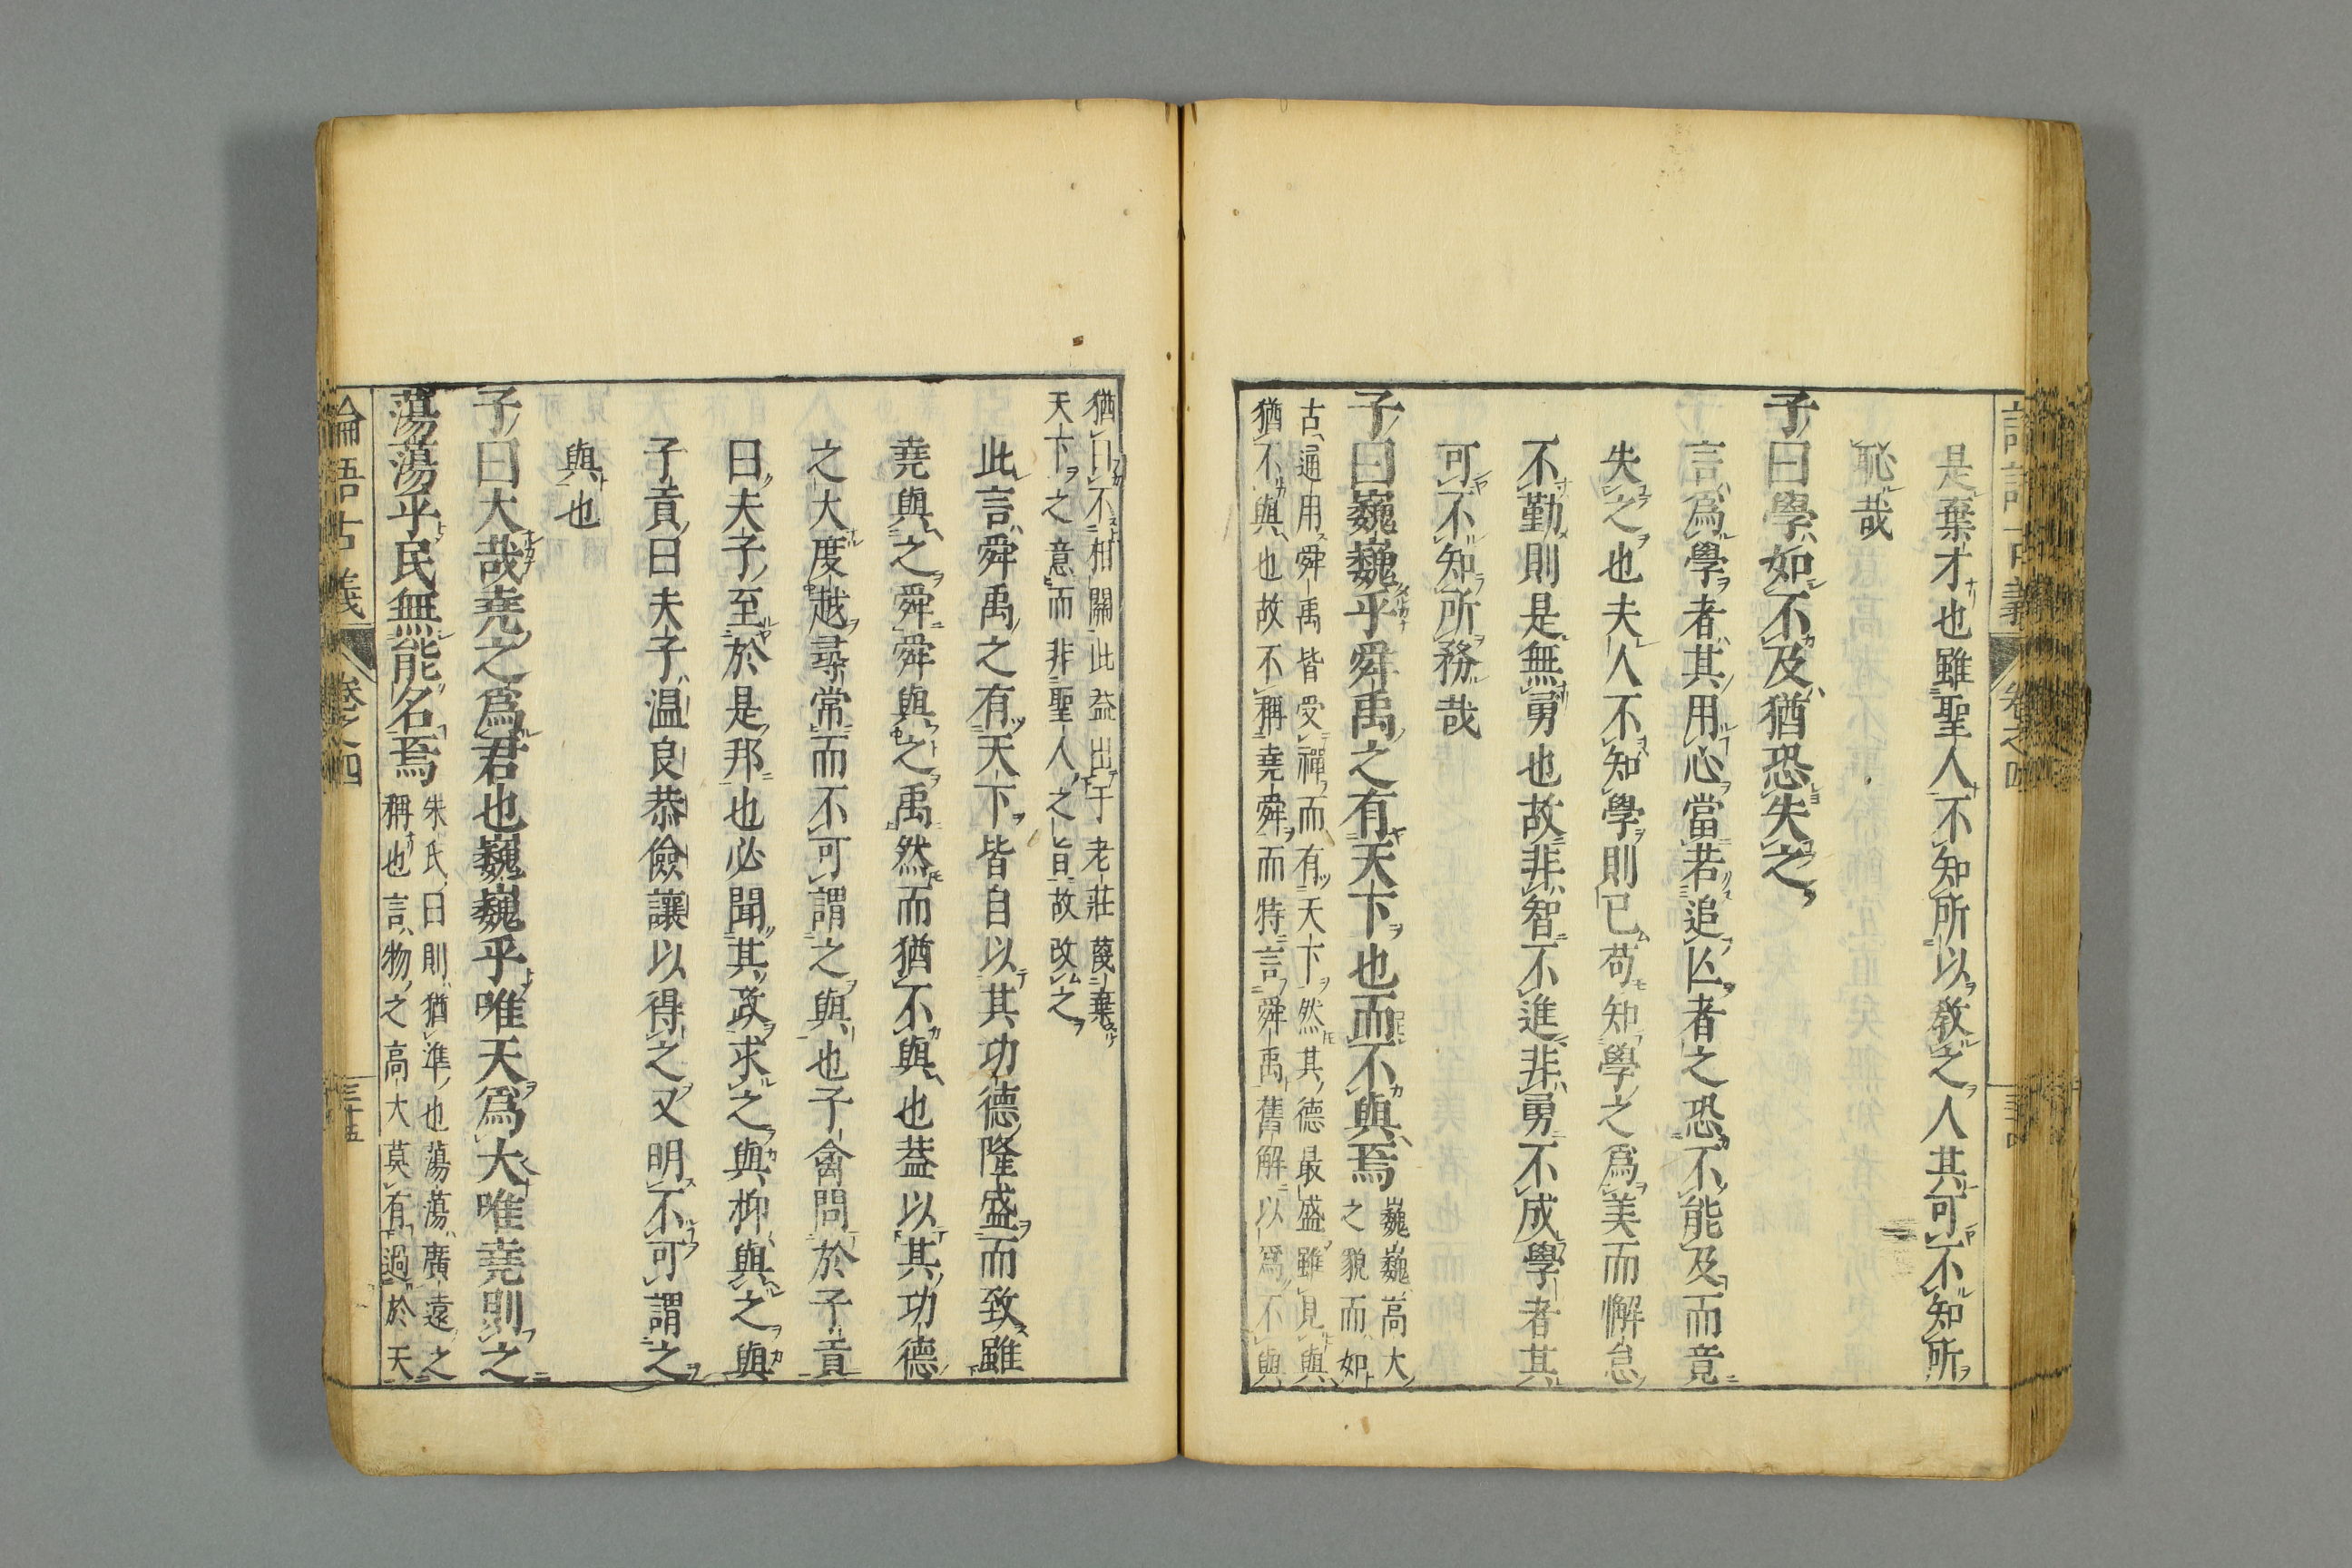 是棄才也雖聖人不知所以教之人其可不知所
恥哉
子曰學如不及猶恐失之
言爲學者其用心當若追亾者之恐不能及而竟
失之也夫人不知學則已苟知學之爲美而懈怠
不勤則是無勇也故非智不進非勇不成學者其
可不知所務哉
子曰巍巍乎舜禹之有天下也而不與焉
巍巍高大
之貌而如
古通用舜禹皆受禪而有天下然其德最盛雖見與
猶不與也故不稱堯舜而特言舜禹舊解以爲不與
猶曰不相關此益出于老莊蔑棄
天下之意而非聖人之旨故改之
此言舜禹之有天下皆自以其功德隆盛而致雖
堯與之舜舜與之禹然而猶不與也葢以其功德
之大度越尋常而不可謂之與也子禽問於子貢
曰夫子至於是邦也必聞其政求之與抑與之與
子貢曰夫子温良恭儉讓以得之又明不可謂之
與也
子曰大哉堯之爲君也巍巍乎唯天爲大唯堯則之
蕩蕩乎民無能名焉
朱氏曰則猶準也蕩蕩廣遠之
稱也言物之高大莫有過於天
論語古義 卷之四 三十五